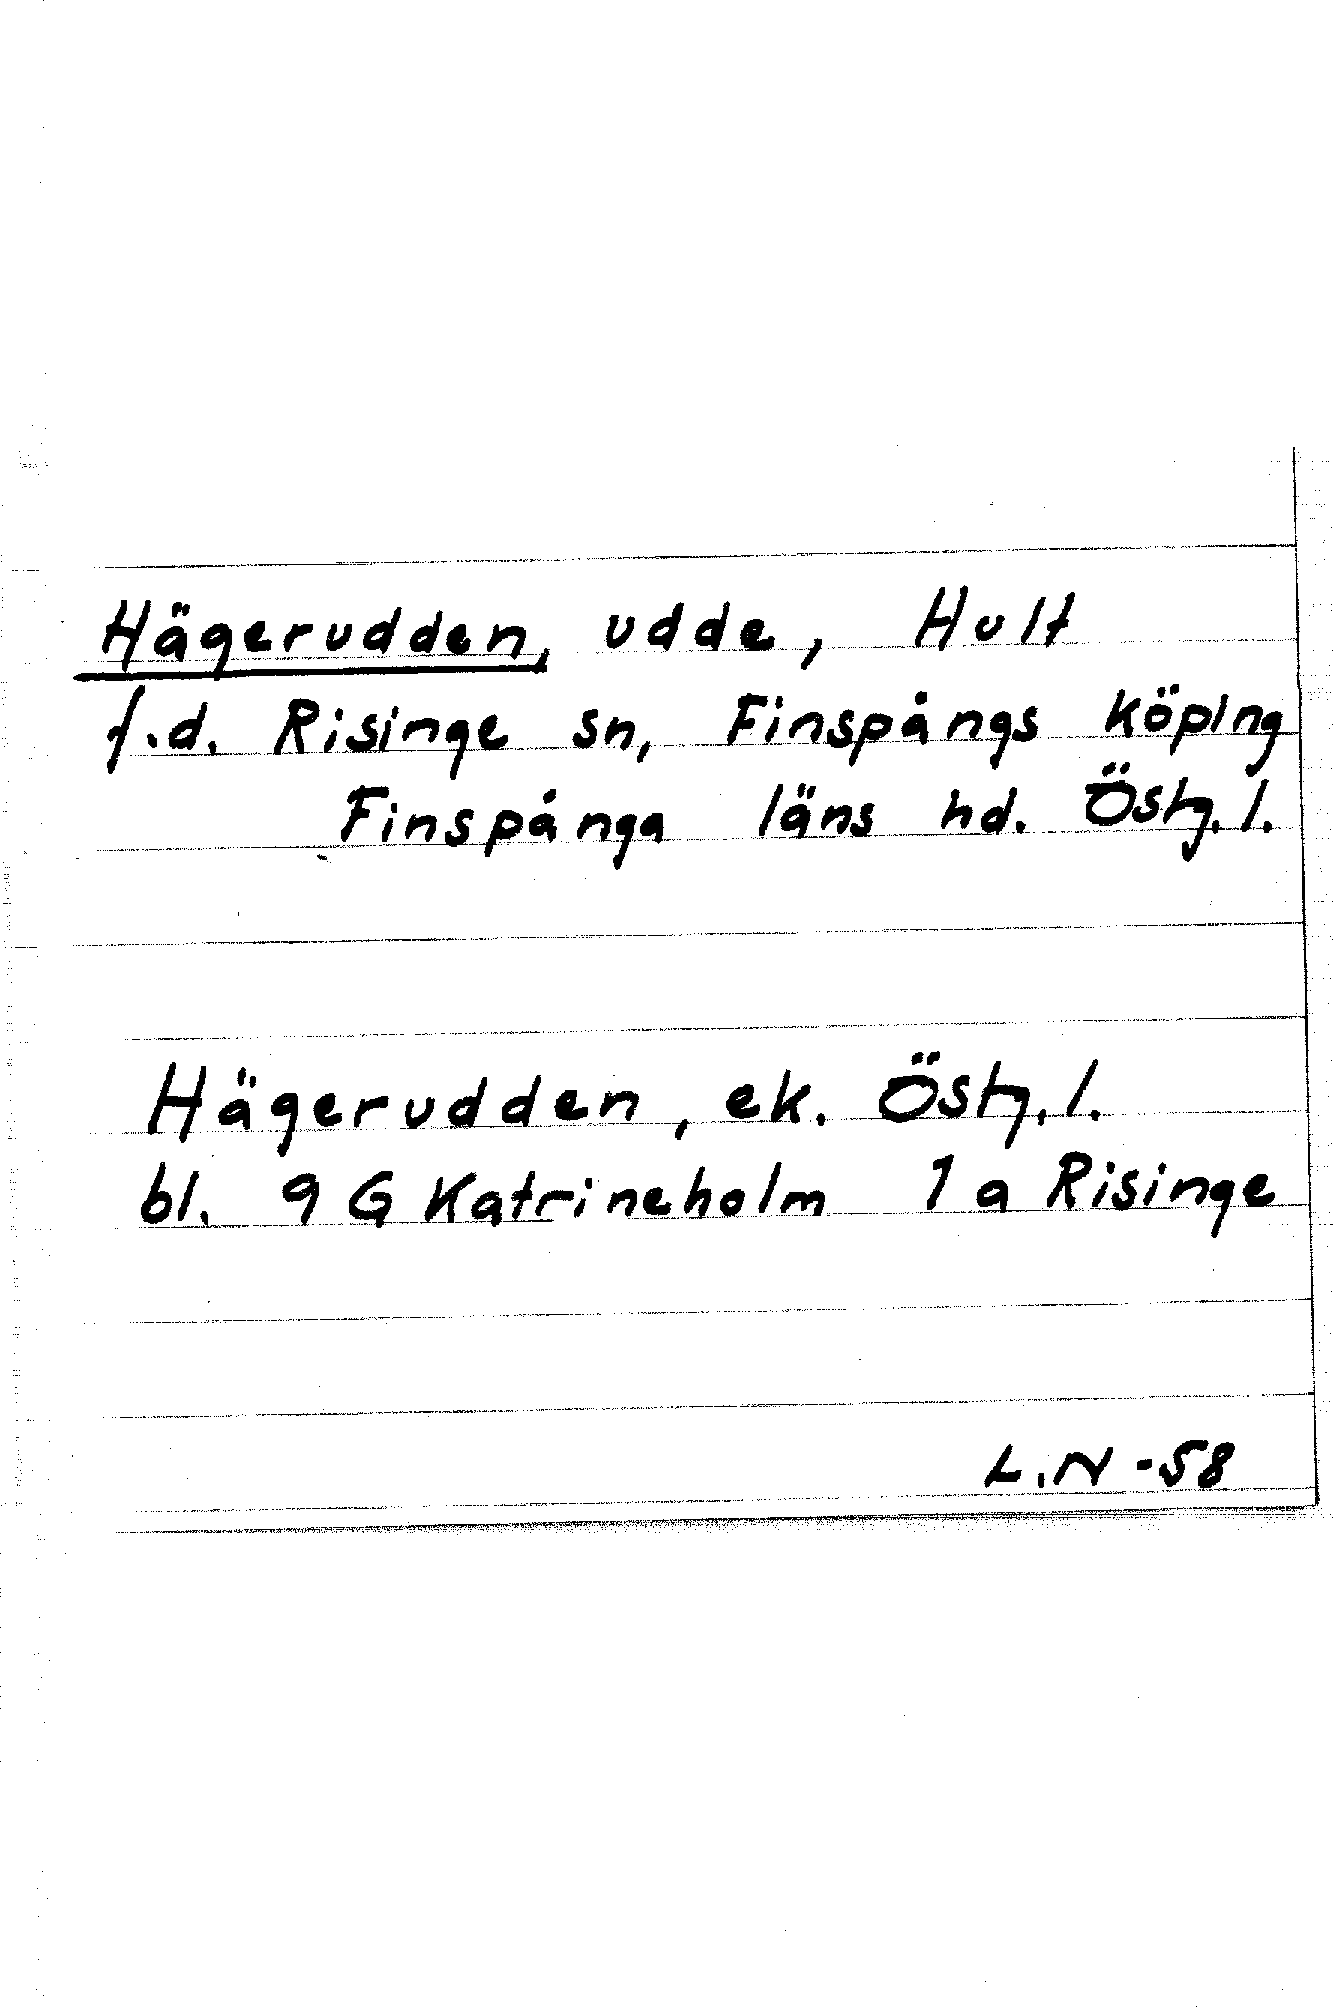 Hägerudden, udde, Hult
f.d. Risinge sn, Finspångs köping
Finspånga läns hd. Östg. l.
Hägerudden, ek. Östg. l.
bl. 9 G Katrineholm 1 a Risinge
L.N -58